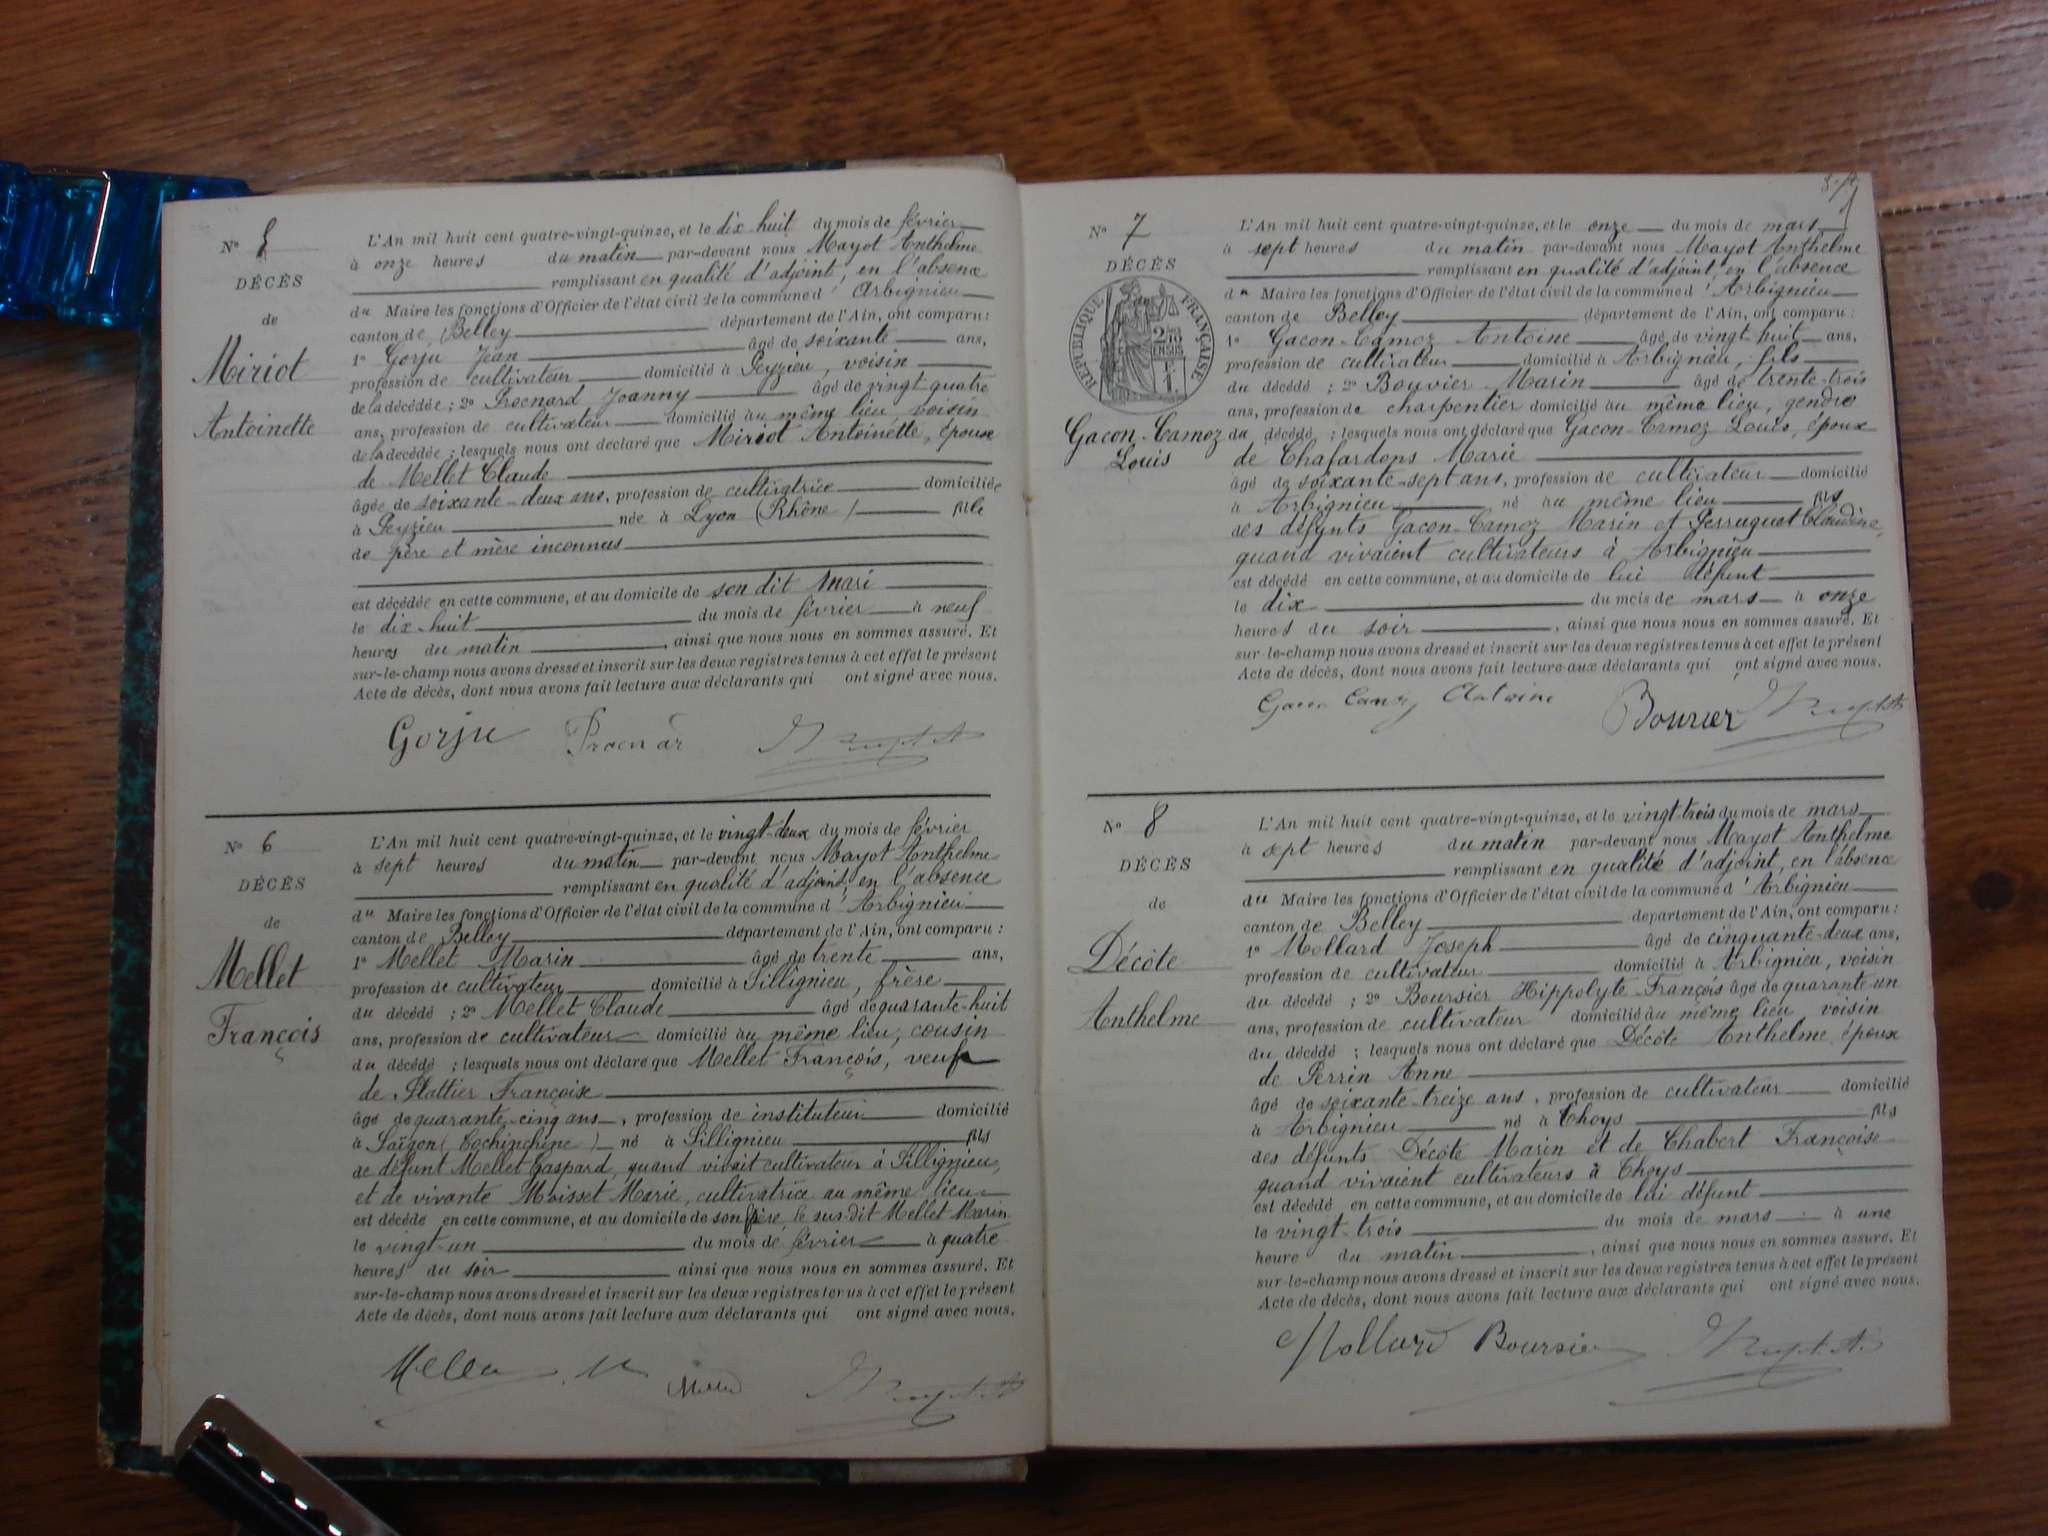 N° 5
DÉCÈS
de
Miriot
Antoinette
L'An mil huit cent quatre-vingt-quinze, et le dix-huit du mois de février
à onze heures du matin par-devant nous Mayot Anthelme
remplissant en qualité d'adjoint, en l'absence
du Maire les fonctions d'Officier de l'état civil de la commune d'Arbignieu
canton de Belley département de l'Ain, ont comparu :
1° Gorju Jean âgé de soixante ans,
profession de cultivateur domicilié à Peyzieu, voisin
de la décédée ; 2° Joanny âgé de vingt quatre
ans, profession de cultivateur domicilié au même lieu, voisin
de la décédée ; lesquels nous ont déclaré que Miriot Antoinette, épouse
de Mellet Claude
âgée de soixante-deux ans, profession de cultivatrice domiciliée
à Peyzieu née à Lyon (Rhône) fille
de père et mère inconnus
est décédée en cette commune, et au domicile de son dit mari
le dix-huit du mois de février à neuf
heures du matin, ainsi que nous nous en sommes assuré. Et
sur-le-champ nous avons dressé et inscrit sur les deux registres tenus à cet effet le présent
Acte de décès, dont nous avons fait lecture aux déclarants qui ont signé avec nous.
Gorju
N° 6
DÉCÈS
de
Mellet
François
L'An mil huit cent quatre-vingt-quinze, et le vingt-deux du mois de février
à sept heures du matin par-devant nous Mayot Anthelme
remplissant en qualité d'adjoint, en l'absence
du Maire les fonctions d'Officier de l'état civil de la commune d'Arbignieu
canton de Belley département de l'Ain, ont comparu :
1° Mellet Marin âgé de trente ans,
profession de cultivateur domicilié à Sillignieu, frère
du décédé ; 2° Mellet Claude âgé de quarante-huit
ans, profession de cultivateur domicilié au même lieu, cousin
du décédé ; lesquels nous ont déclaré que Mellet François, veuf
de Plattier Françoise
âgé de quarante-cinq ans, profession de instituteur domicilié
à Saïgon (Cochinchine) né à Sillignieu fils
de défunt Mellet Gaspard, quand vivait cultivateur à Sillignieu,
et de vivante Moisset Marie, cultivatrice au même lieu
est décédé en cette commune, et au domicile de son frère, le sus-dit Mellet Marin
le vingt-un du mois de février à quatre
heures du soir ainsi que nous nous en sommes assuré. Et
sur-le-champ nous avons dressé et inscrit sur les deux registres tenus à cet effet le présent
Acte de décès, dont nous avons fait lecture aux déclarants qui ont signé avec nous.
N° 7
DÉCÈS
RÉPUBLIQUE FRANÇAISE
Gacon-Camoz
Louis
L'An mil huit cent quatre-vingt-quinze, et le onze du mois de mars
à sept heures du matin par-devant nous Mayot Anthelme
remplissant en qualité d'adjoint, en l'absence
du Maire les fonctions d'Officier de l'état civil de la commune d'Arbignieu
canton de Belley département de l'Ain, ont comparu :
1° Gacon-Camoz Antoine âgé de vingt huit ans,
profession de cultivateur domicilié à Arbignieu, fils
du décédé ; 2° Bouvier Marin âgé de trente-trois
ans, profession de charpentier domicilié au même lieu, gendre
du décédé ; lesquels nous ont déclaré que Gacon-Camoz Louis, époux
de Chafardons Marie
âgé de soixante-sept ans, profession de cultivateur domicilié
à Arbignieu né au même lieu fils
des défunts Gacon-Camoz Marin et Perruquet Claudine,
quand vivaient cultivateurs à Arbignieu
est décédé en cette commune, et au domicile de lui défunt
le dix du mois de mars à onze
heures du soir, ainsi que nous nous en sommes assuré. Et
sur-le-champ nous avons dressé et inscrit sur les deux registres tenus à cet effet le présent
Acte de décès, dont nous avons fait lecture aux déclarants qui ont signé avec nous.
Antoine Bouvier
N° 8
DÉCÈS
de
Décôte
Anthelme
L'An mil huit cent quatre-vingt-quinze, et le vingt-trois du mois de mars
à sept heures du matin par-devant nous Mayot Anthelme
remplissant en qualité d'adjoint, en l'absence
du Maire les fonctions d'Officier de l'état civil de la commune d'Arbignieu
canton de Belley département de l'Ain, ont comparu :
1° Mollard Joseph âgé de cinquante-deux ans,
profession de cultivateur domicilié à Arbignieu, voisin
du décédé ; 2° Boursier Hippolyte-François âgé de quarante un
ans, profession de cultivateur domicilié au même lieu, voisin
du décédé ; lesquels nous ont déclaré que Décôte Anthelme, époux
de Perrin Anne
âgé de soixante-treize ans, profession de cultivateur domicilié
à Arbignieu né à Thoys fils
des défunts Décôte Marin et de Chabert Françoise
quand vivaient cultivateurs à Thoys
est décédé en cette commune, et au domicile de lui défunt
le vingt-trois du mois de mars à une
heure du matin, ainsi que nous nous en sommes assuré. Et
sur-le-champ nous avons dressé et inscrit sur les deux registres tenus à cet effet le présent
Acte de décès, dont nous avons fait lecture aux déclarants qui ont signé avec nous.
Mollard Boursier